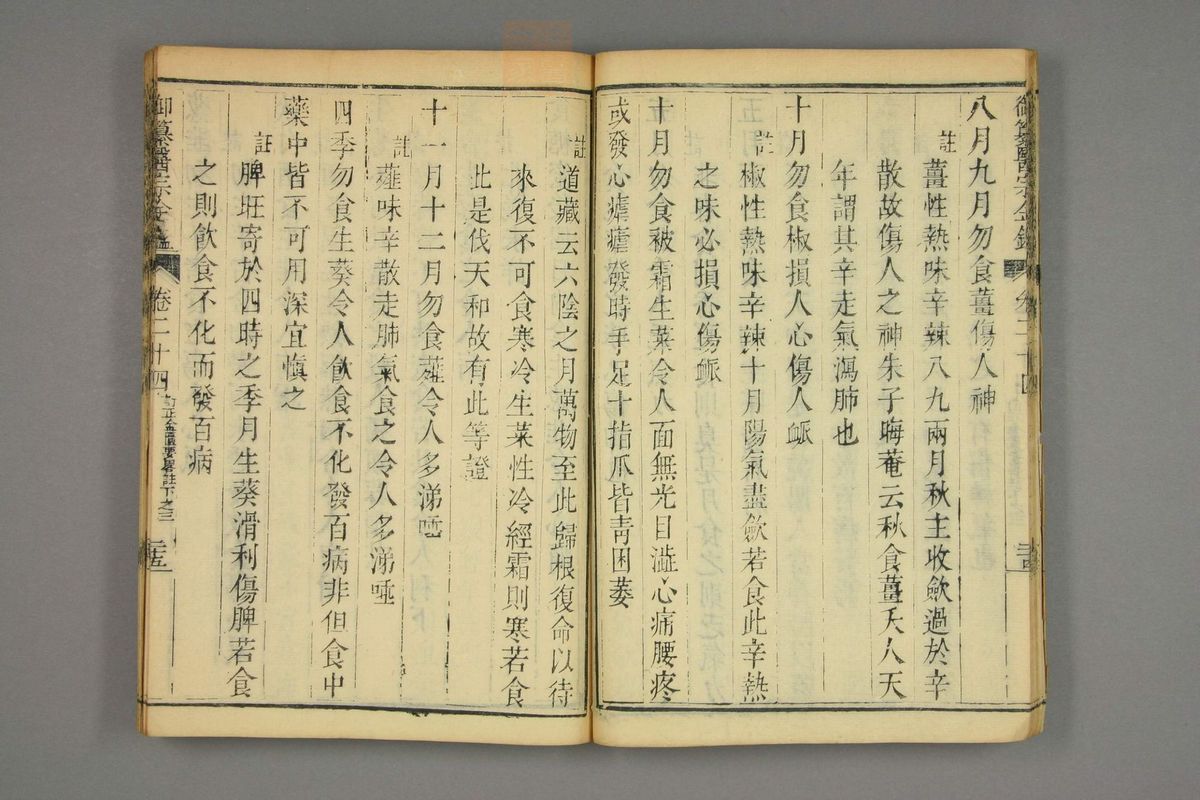 八月九月勿食薑傷人神
註
薑性熱味辛辣八九兩月秋主收斂過於辛
散故傷人之神朱子晦菴云秋食薑夭人天
年謂其辛走氣瀉肺也
十月勿食椒損人心傷人衇
註
椒性熱味辛辣十月陽氣盡斂若食此辛熱
之味必損心傷衇
十月勿食被霜生菜令人面無光目澁心痛腰疼
或發心瘧瘧發時手足十指爪皆青困萎
註
道藏云六陰之月萬物至此歸根復命以待
來復不可食寒冷生菜性冷經霜則寒若食
此是伐天和故有此等證
十一月十二月勿食薤令人多涕唾
註
薤味辛散走肺氣食之令人多涕唾
四季勿食生葵令人飲食不化發百病非但食中
藥中皆不可用深宜慎之
註
脾旺寄於四時之季月生葵滑利傷脾若食
之則飲食不化而發百病
御纂醫宗金鑑
卷二十四
訂正金匱要畧註下之三
三五